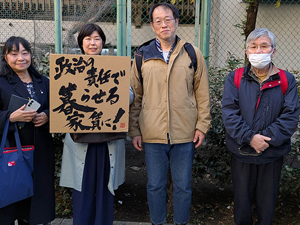 政治の責任で
暮らせる
家賃に!